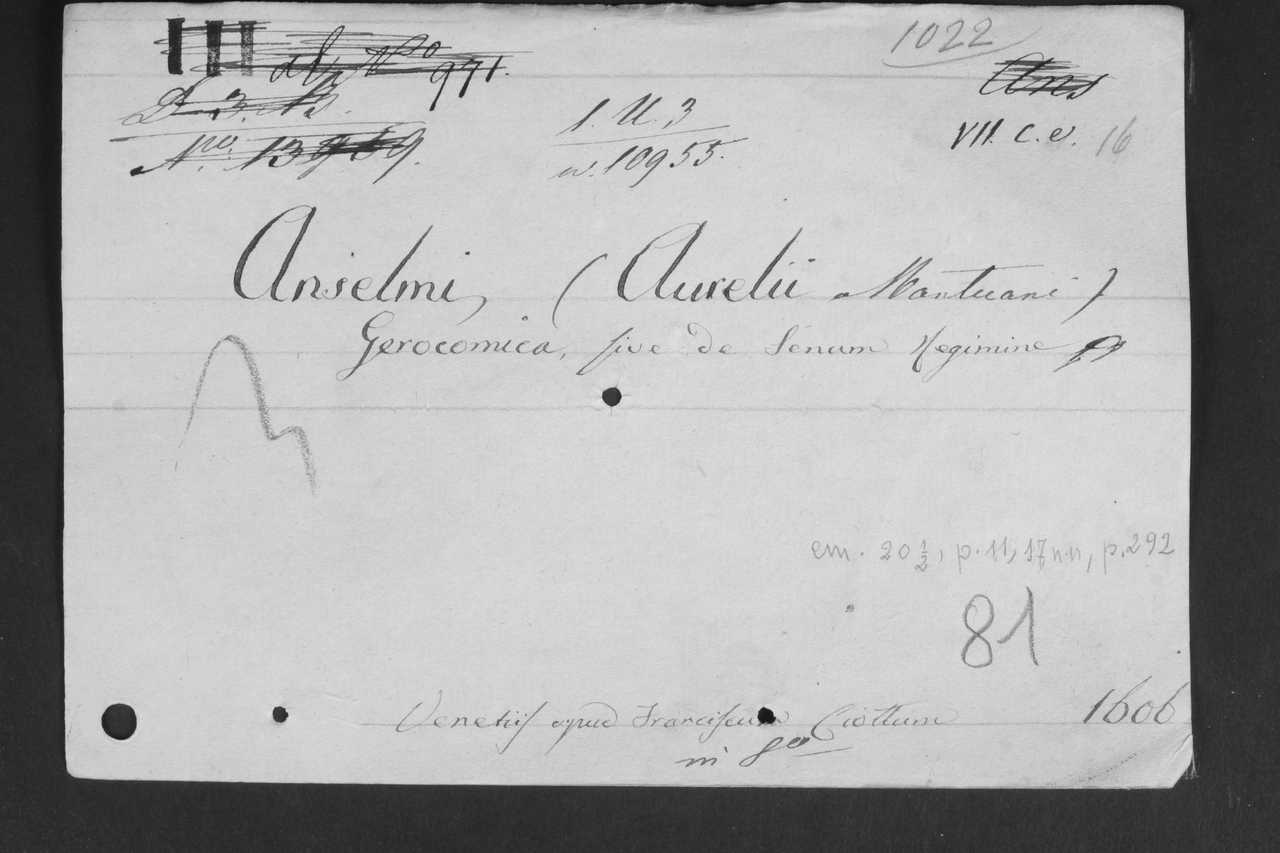 1022
III ab No 971.
Ans
D. 3. N3.
1. U. 3
VII. c. e. 16
No. 13
n. 10955.
Anselmi, (Aurelii Mantuani)
Gerocomica, sive de Senum Regimine
cm. 20 1/2, p. 11, 17 n.n, p. 292
81
Venetiis apud Franciscum Ciottum 1606
in 8o